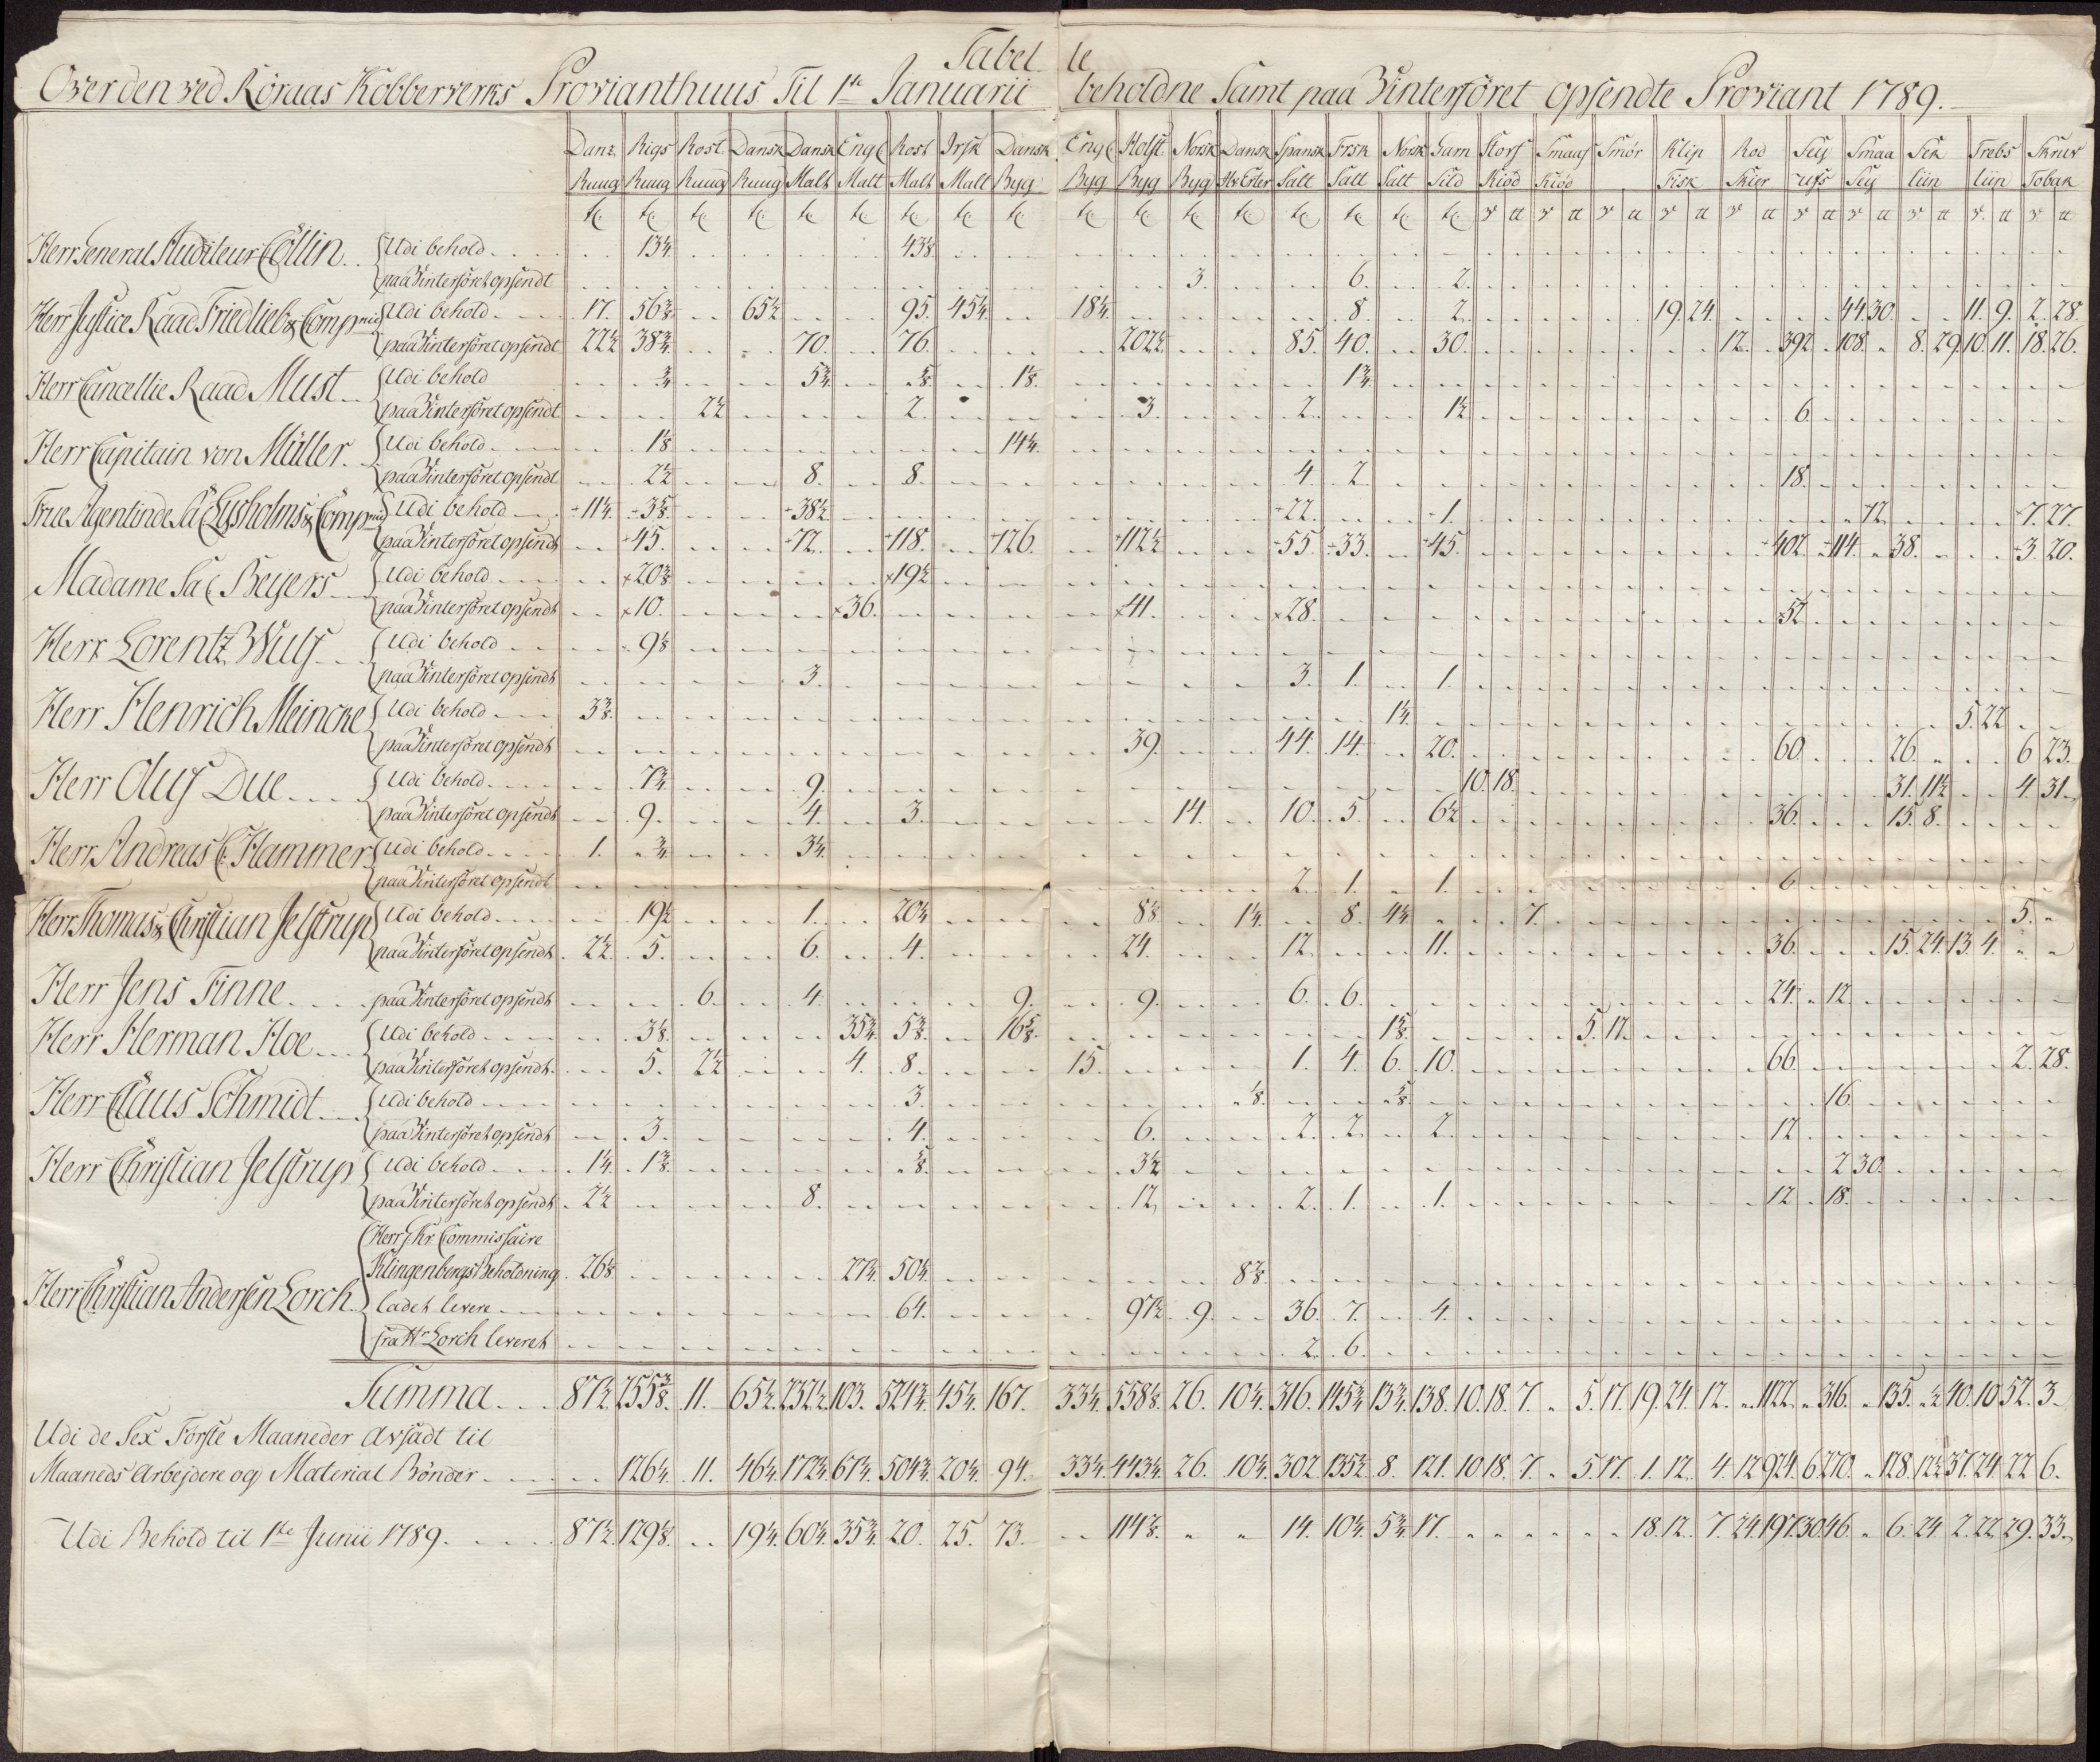 Tabelle
Over den ved Röraas Kobberverks Provianthuus Til 1te Januarii beholdne Samt paa Vinterföret opsendte Proviant 1789.
Danz. Rigs Rost. Dansk Dansk Engl Rost Irsk Dansk Engl Holst Norsk Dansk Spansk Frsk Norsk Garn Storf Smaaf Smør Klip Rod Seij Smaa Sek Trebs Skruv
Ruug Ruug Ruug Ruug Malt Malt Malt Malt Byg Byg Byg Byg Hv Erter Salt Salt Salt Sild Kiöd Kiöd Fisk Skier rufs Seij liin liin Tobak
Herr General Auditeur Collin Udi behold 13¼ 43⅛
paa Vinterföret opsendt 3. 6. 2.
Herr Justice Raad Friedlieb & Compnie Udi behold 17. 56¾ 65½ 95. 45¼ 18¼ 8. 2. 19. 24. 44 30. 11. 9. 2. 28.
paa Vinterföret opsendt 22½ 38¾ 70. 76. 202½ 85. 40. 30. 12. 392 108. 8. 29. 10. 11. 18. 26.
Herr Cancellie Raad Must Udi behold ¾ 5¾ ⅝ 1⅛ 1¾
paa Vinterföret opsendt 2½ 2. 3. 2. 1½ 6.
Herr Capitain von Müller Udi behold 1⅛ 14¼
paa Vinterföret opsendt 2½ 8. 8. 4. 2. 18.
Frue Agentinde Sal Lysholms & Compnie Udi behold 11¼ 3⅝ 38½ 22. 1. 12. 7. 27.
paa Vinterföret opsendt 45. 12. 118. 126. 112½ 55. 33. 45. 402. 114. 38. 3. 20.
Madame Sal Beyers Udi behold 20⅜ 19½
paa Vinterföret opsendt 10. 36. 41. 28. 52.
Herr Lorentz Wulf Udi behold 9⅛
paa Vinterföret opsendt 3. 3. 1. 1.
Herr Henrich Meincke Udi behold 3⅜ 1¼ 5. 22
paa Vinterföret opsendt 39. 44. 14. 20. 60. 26. 6 23.
Herr Oluf Due Udi behold 7¾ 9. 10. 18. 31. 11½ 4. 31.
paa Vinterföret opsendt 9. 4. 3. 14. 10. 5. 6½ 36. 15. 8.
Herr Andreas C. Hammer Udi behold 1. ¾ 3¼
paa Vinterföret opsendt 2. 1. 1. 6.
Herr Thomas & Christian Jelstrup Udi behold 19½ 1. 20¼ 8⅛ 1¼ 8. 4¼ 7. 5.
paa Vinterföret opsendt 2½ 5. 6. 4. 24. 12. 11. 36. 15. 24. 13. 4.
Herr Jens Finne paa Vinterföret opsendt 6. 4. 9. 9. 6. 6. 24. 12.
Herr Herman Hoe Udi behold 3⅛ 35¾ 5⅜ 16⅝ 1⅝ 5. 17.
paa Vinterföret opsendt 5. 2½ 4. 8. 15. 1. 4. 6. 10. 66. 2. 28.
Herr Claus Schmidt Udi behold 3. ⅛ ⅝ 16.
paa Vinterföret opsendt 3. 4. 6. 2. 2. 2. 12.
Herr Christian Jelstrup Udi behold 1¼ 1⅜ ⅝ 3½ 2 30.
paa Vinterföret opsendt 2½ 8. 12. 2. 1. 1. 12 18.
Herr Kr. Commissaire
Herr Christian Andersen Lorch Klingenbergs Beholdning 26⅛ 27¼ 50¼ 8⅞
ladet levere 64. 97½ 9. 36. 7. 4.
fra Hr Lorch leveret 2. 6.
Summa 87½ 255⅝ 11. 65½ 232½ 103. 524¾ 45¼ 167. 33¼ 558⅛ 26. 10¼ 316. 145¾ 13¾ 138. 10. 18. 7. 5. 17. 19. 24. 12. 1122. 316. 135. ½ 40. 10 52. 3.
Udi de Sex Förste Maaneder Avsadt til
Maaneds Arbejdere og Material Bönder 126¼ 11. 46¼ 172¼ 67¼ 504¾ 20¼ 94. 33¼ 443¼ 26. 10¼ 302 135½ 8. 121. 10. 18. 7. 5. 17. 1. 12. 4. 12 924. 6 270. 128. 12½ 37. 24. 22 6.
Udi Behold til 1te Junii 1789. 87½ 129⅛ 19¼ 60¼ 35¾ 20. 25. 73. 114⅞ 14. 10¼ 5¾ 17. 18. 12. 7. 24. 197. 30 46. 6. 24. 2. 22 29. 33.